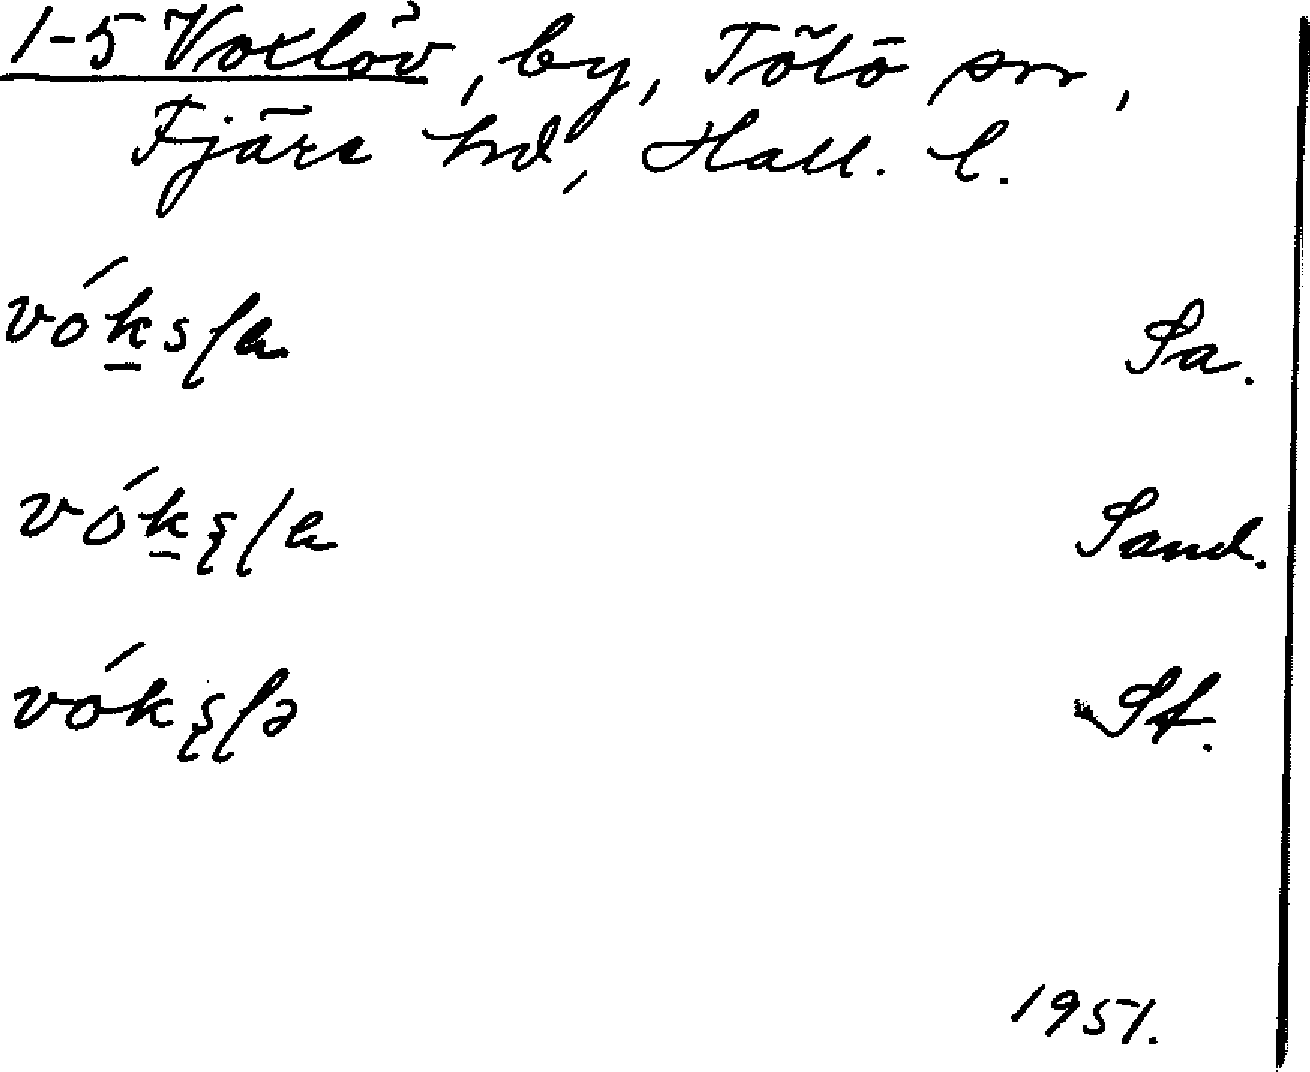 1-5 Voxlöv, by, Tölö sn,
Fjäre hd, Hall. l.
vók̲sla Sa.
vók̲s̨la Sand.
vóks̨lə St.
1951.